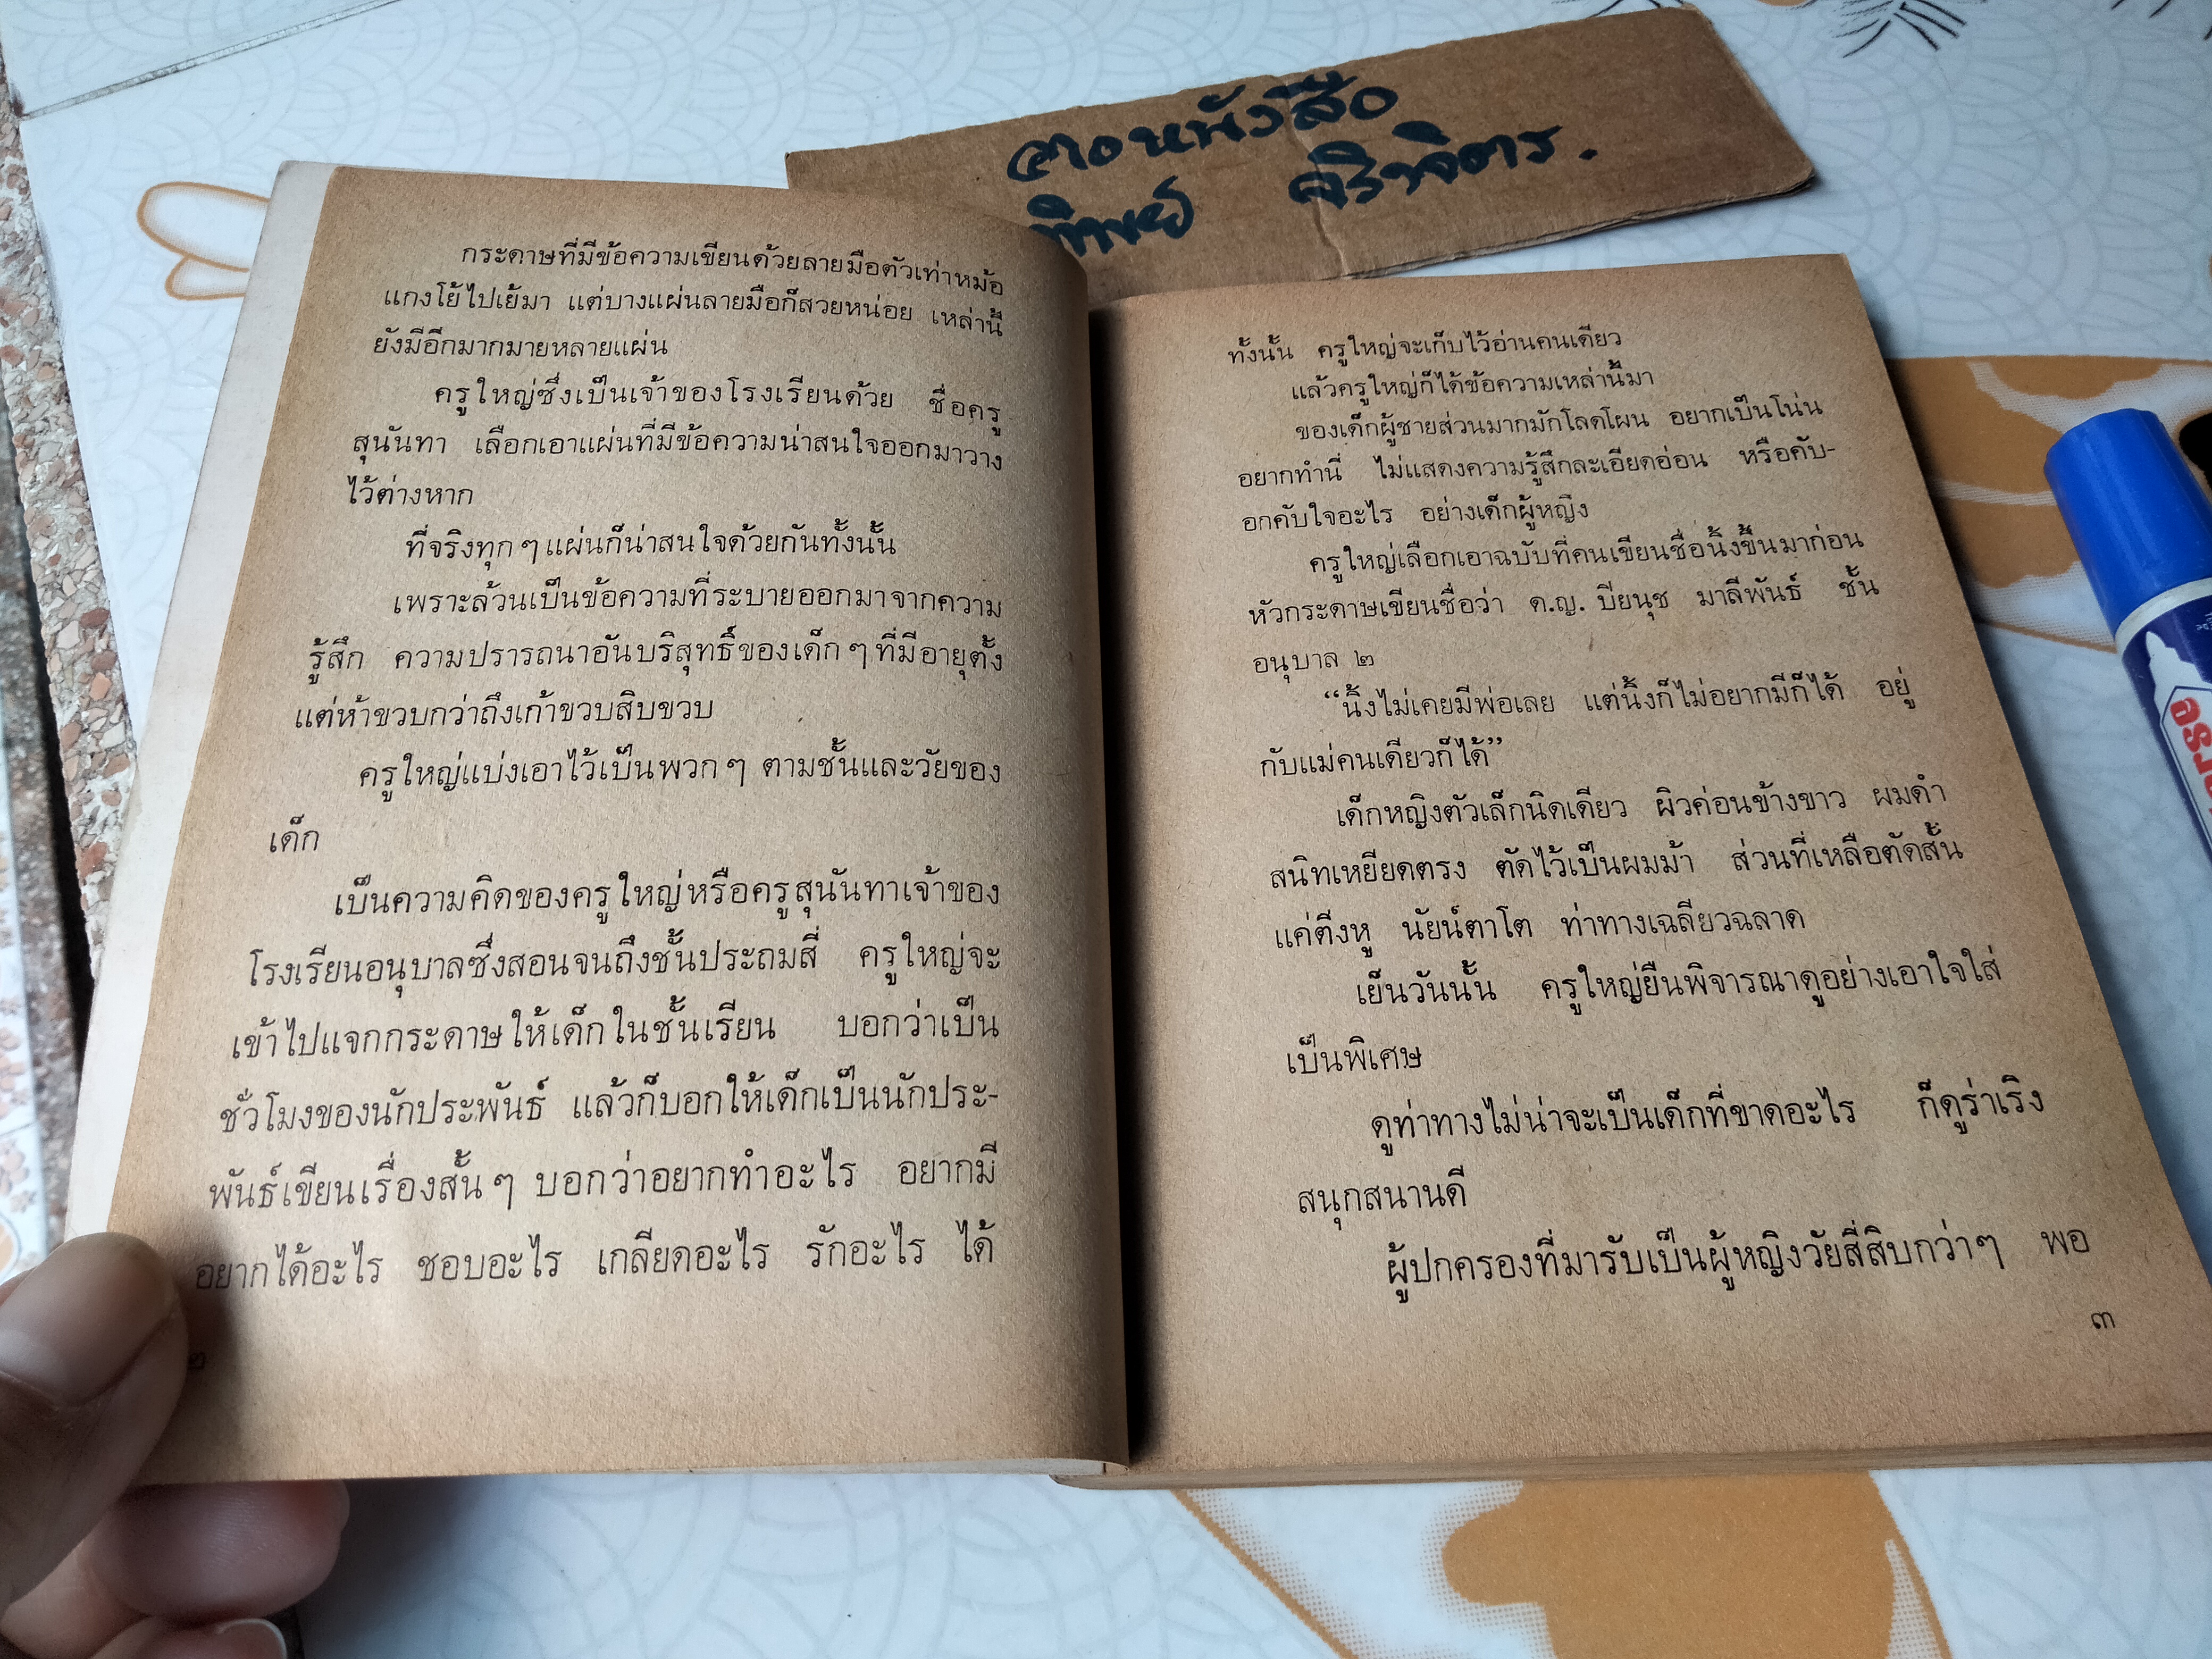 ตอหนังสือ
ทิพย์ ศิริจิตร.
กระดาษที่มีข้อความเขียนด้วยลายมือตัวเท่าหม้อ
แกงโย้ไปเย้มา แต่บางแผ่นลายมือก็สวยหน่อย เหล่านี้
ยังมีอีกมากมายหลายแผ่น
ครูใหญ่ซึ่งเป็นเจ้าของโรงเรียนด้วย ชื่อครู
สุนันทา เลือกเอาแผ่นที่มีข้อความน่าสนใจออกมาวาง
ไว้ต่างหาก
ที่จริงทุกๆแผ่นก็น่าสนใจด้วยกันทั้งนั้น
เพราะล้วนเป็นข้อความที่ระบายออกมาจากความ
รู้สึก ความปรารถนาอันบริสุทธิ์ของเด็กๆที่มีอายุตั้ง
แต่ห้าขวบกว่าถึงเก้าขวบสิบขวบ
ครูใหญ่แบ่งเอาไว้เป็นพวกๆ ตามชั้นและวัยของ
เด็ก
เป็นความคิดของครูใหญ่หรือครูสุนันทาเจ้าของ
โรงเรียนอนุบาลซึ่งสอนจนถึงชั้นประถมสี่ ครูใหญ่จะ
เข้าไปแจกกระดาษให้เด็กในชั้นเรียน บอกว่าเป็น
ชั่วโมงของนักประพันธ์ แล้วก็บอกให้เด็กเป็นนักประ-
พันธ์เขียนเรื่องสั้นๆ บอกว่าอยากทำอะไร อยากมี
อยากได้อะไร ชอบอะไร เกลียดอะไร รักอะไร ได้
๒
ทั้งนั้น ครูใหญ่จะเก็บไว้อ่านคนเดียว
แล้วครูใหญ่ก็ได้ข้อความเหล่านี้มา
ของเด็กผู้ชายส่วนมากมักโลดโผน อยากเป็นโน่น
อยากทำนี่ ไม่แสดงความรู้สึกละเอียดอ่อน หรือคับ-
อกคับใจอะไร อย่างเด็กผู้หญิง
ครูใหญ่เลือกเอาฉบับที่คนเขียนชื่อนิ้งขึ้นมาก่อน
หัวกระดาษเขียนชื่อว่า ด.ญ. ปิยนุช มาลีพันธ์ ชั้น
อนุบาล ๒
“นิ้งไม่เคยมีพ่อเลย แต่นิ้งก็ไม่อยากมีก็ได้ อยู่
กับแม่คนเดียวก็ได้”
เด็กหญิงตัวเล็กนิดเดียว ผิวค่อนข้างขาว ผมดำ
สนิทเหยียดตรง ตัดไว้เป็นผมม้า ส่วนที่เหลือตัดสั้น
แค่ติ่งหู นัยน์ตาโต ท่าทางเฉลียวฉลาด
เย็นวันนั้น ครูใหญ่ยืนพิจารณาดูอย่างเอาใจใส่
เป็นพิเศษ
ดูท่าทางไม่น่าจะเป็นเด็กที่ขาดอะไร ก็ดูร่าเริง
สนุกสนานดี
ผู้ปกครองที่มารับเป็นผู้หญิงวัยสี่สิบกว่าๆ พอ
๓